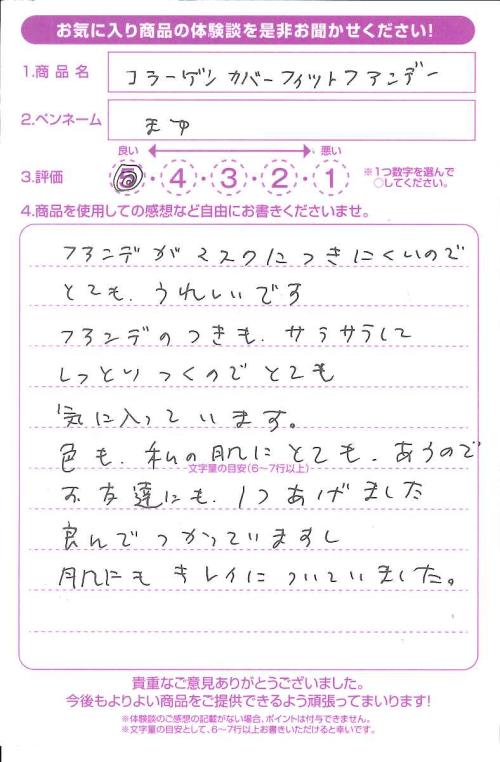 お気に入り商品の体験談を是非お聞かせください!
1.商品名 コラーゲンカバーフィットファンデー
2.ペンネーム まゆ
良い 悪い
3.評価 5・4・3・2・1 ※1つ数字を選んで
○してください。
4.商品を使用しての感想など自由にお書きくださいませ。
ファンデがマスクにつきにくいので
とても、うれしいです
ファンデのつきも、サラサラして
しっとりつくのでとても
気に入っています。
色も、私の肌にとても、あうので
文字量の目安(6〜7行以上)
お友達にも、1つあげました
喜んでつかっていますし
肌にもキレイについていました。
貴重なご意見ありがとうございました。
今後もよりよい商品をご提供できるよう頑張ってまいります!
※体験談のご感想の記載がない場合、ポイントは付与できません。
※文字量の目安として、6〜7行以上お書きいただけると幸いです。